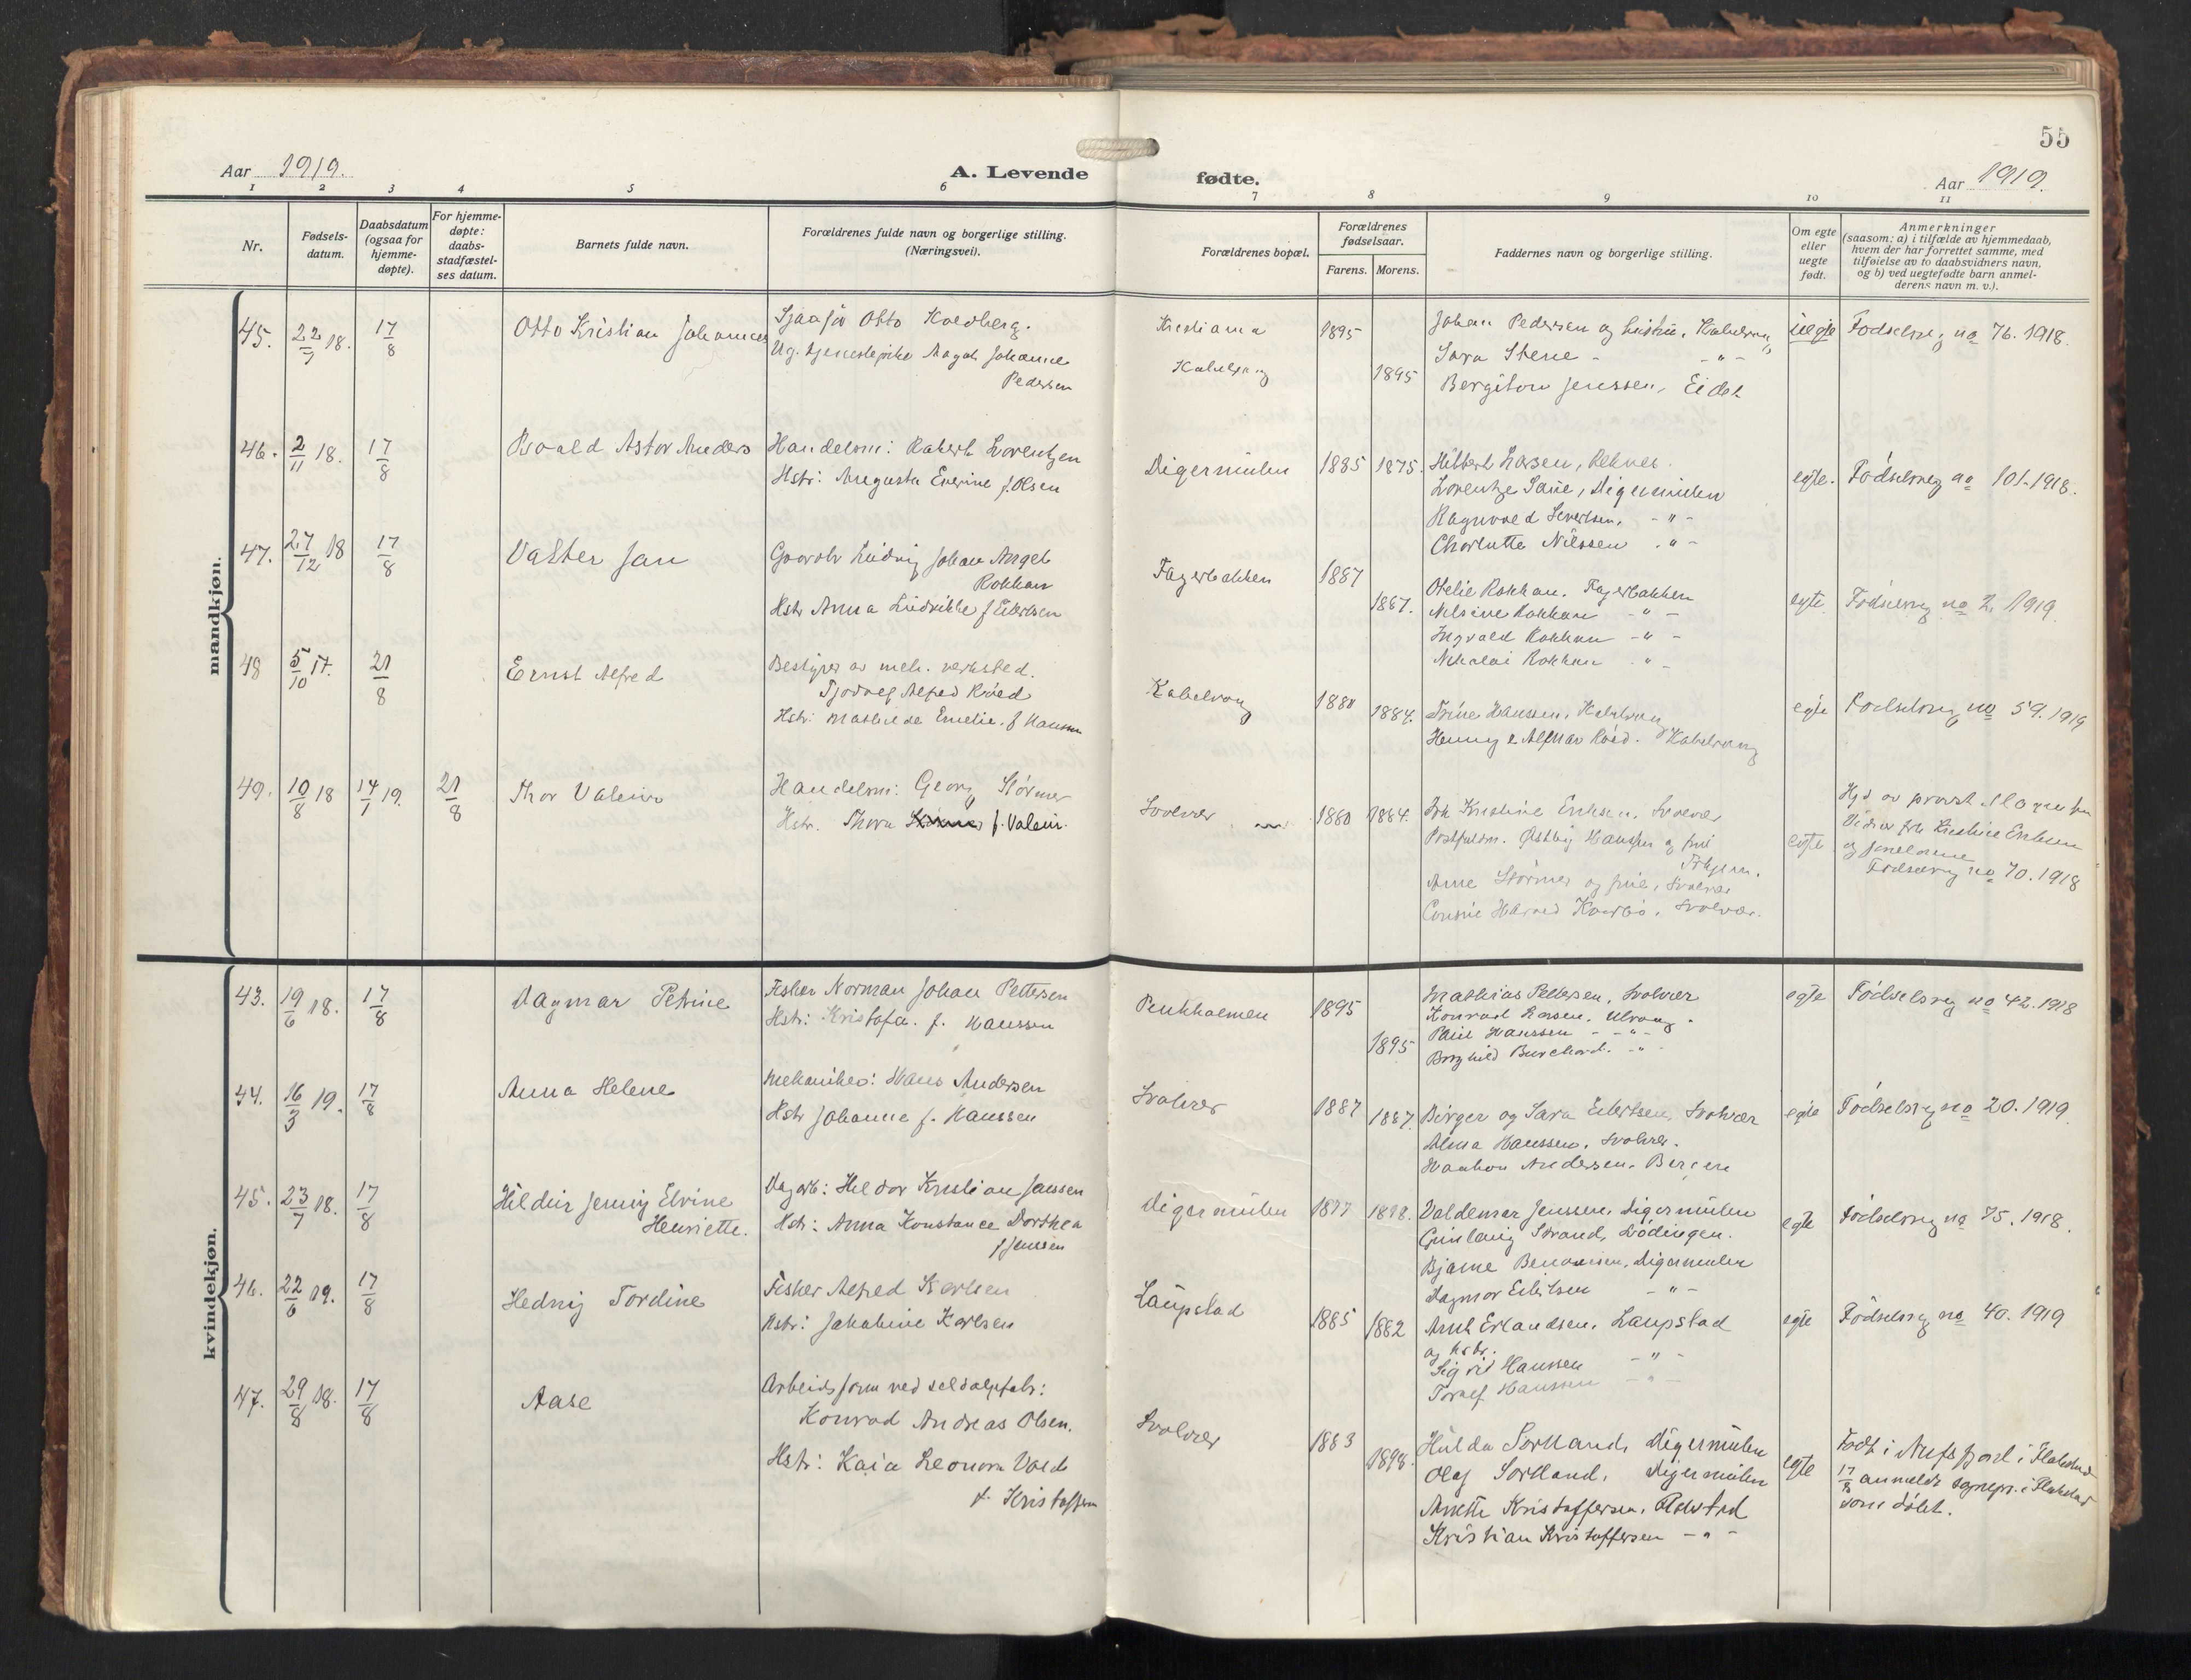 55
Aar 1919.
A. Levende fødte.
Aar 1919.
1 2 3 4 5 6 7 8 9 10 11
Nr.
Fødsels-
datum.
Daabsdatum
(ogsaa for
hjemme-
døpte).
For hjemme-
døpte:
daabs-
stadfæstel-
ses datum.
Barnets fulde navn.
Forældrenes fulde navn og borgerlige stilling.
(Næringsvei).
Forældrenes bopæl.
Forældrenes
fødselsaar.
Farens. Morens.
Faddernes navn og borgerlige stilling.
Om egte
eller
uegte
født.
Anmerkninger
(saasom: a) i tilfælde av hjemmedaab,
hvem der har forrettet samme, med
tilføielse av to daabsvidners navn,
og b) ved uegtefødte barn anmel-
derens navn m. v.).
mandkjøn.
45. 22/7 18. 17/8 Otto Kristian Johannes
Otto Koldberg.
Ug. tjenestepike Magda Johanne
Pedersen
Kristiania 1895
Kabelvaag 1895
Johan Pedersen og hustru, Kabelvaag
Sara Stene - - " -
Bergiton Jenssen, Eidet
uegte Fødselsreg no 76. 1918.
46. 2/11 18. 17/8 Astor Anders
Handelsm: Robert Lorentzen
Hstr: Augusta Everine f. Olsen
Digermulen 1885 1875.
Hilbert Larsen,
Lorentze Digermulen
Ragnvald Sivertsen, - " -
Charlotte Nilssen . " -
egte. Fødselsreg no 101. 1918.
47. 27/12 18 17/8 Valter Jan
Ludvig Johan Angel
Rokkan
Hstr Anna Ludvikke f Eilertsen
Fagerbakken 1887
1887.
Otelie Rokkan. Fagerbakken
Nelsine Rokkan - " -
Ingvald Rokkan - " -
Nikolai Rokkan . " -
egte Fødselsreg no 2. 1919
48 5/10 17. 21/8 Ernst Alfred
Bestyrer av mek. verksted.
Alfred Røed
Hstr: Mathilde Emelie. f Hanssen
Kabelvaag 1880 1884.
Trine Hanssen, Kabelvaag
Henny & Røed. Kabelvaag
egte Fødselsreg no 59. 1919
49. 10/8 18 14/1 19. 21/8 Thor Valeur
Handelsm: Georg Størmer
Hstr. Thora f. Valeur.
Svolvær 1880 1884.
Frk Kristine Eriksen, Svolvær
Postfuldm. Østbÿ Hanssen og frue
Arne Størmer og frue, Svolvær
Svolvær.
egte
Hjd av provst
Vidner frk Kristine Eriksen
og forældrene
Fødselsreg no 70. 1918
kvindekjøn.
43. 19/6 18. 17/8 Dagmar Petrine
Fisker Norman Johan Pettersen
Hstr: Kristofa. f. Hanssen
1895
1895
Mathias Pettersen, Svolvær
Konrad Larsen, Ulvaag.
Paul Hanssen - " -
Borghild Burchard. - " -
egte Fødselsreg no 42. 1918
44. 16/3 19. 17/8 Anna Helene
Mekaniker: Hans Andersen
Hstr Johanne f. Hanssen
Svolvær 1887 1887.
Birger og Sara Eilertsen, Svolvær
Alma Hanssen, Svolvær.
Haakon Andersen, Bergen
egte Fødselsreg no 20. 1919
45. 23/7 18. 17/8 Hildur Jenny Elvine
Henriette.
Dagarb: Heldor Kristian Janssen
Hstr: Anna Konstance Dorthea
f Jenssen
Digermulen 1877
Valdemar Jenssen, Digermulen
Gunlaug Strand, Lødingen.
Bjarne Benonisen, Digermulen
Dagmar Eilertsen - " -
egte Fødselsreg no 75. 1918.
46. 22/6 19. 17/8 Hedvig Tordine
Fisker Alfred Karlsen
Hstr: Jakobine Karlsen
Laupstad 1885 1882
Arnt Erlandsen, Laupstad
og hstr.
Sigrid Hanssen - " -
Hanssen - " -
egte Fødselsreg no 40. 1919
47. 29/8 18. 17/8 Aase
Arbeidsform ved sildoljefabr:
Konrad Andreas Olsen.
Hstr: Kaia Leonora Vold
f. Kristoffersen
Svolvær 1883
1898.
Hulda Sortland, Digermulen
Olaf Sortland, Digermulen
Anette Kristoffersen,
Kristian Kristoffersen - " -
egte
Født i Nufsfjord i Flakstad
17/8 anmeldt sognepr. i Flakstad
som døbt.